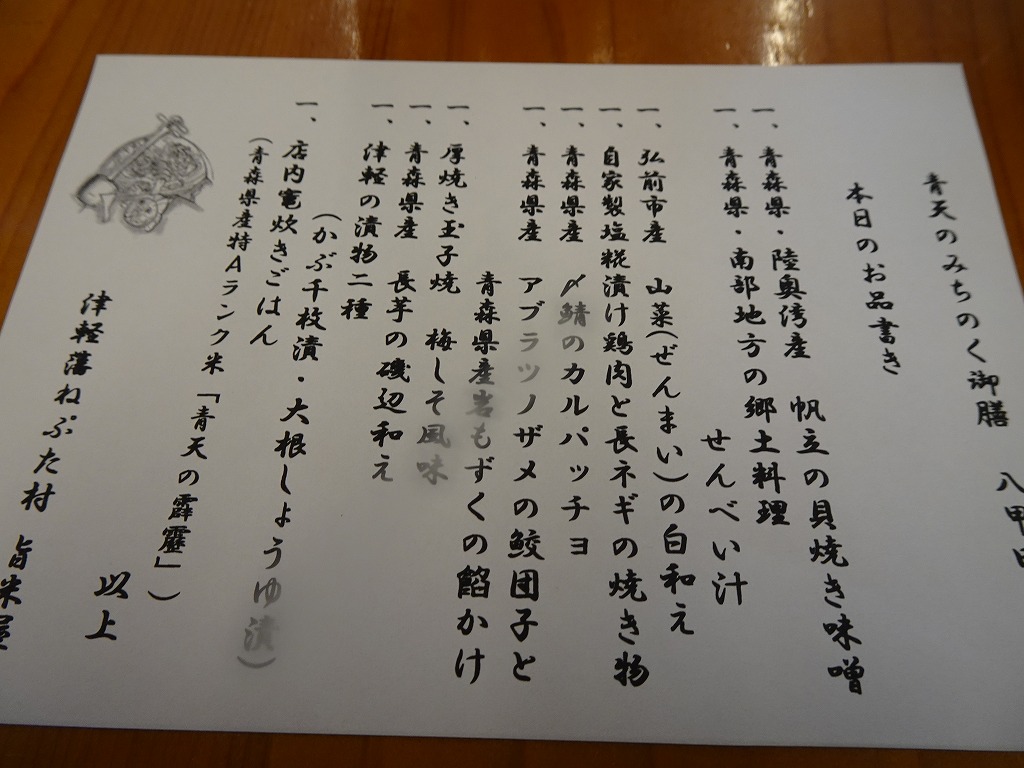 青天のみちのく御膳 八甲田
本日のお品書き
一、青森県・陸奥湾産 帆立の貝焼き味噌
一、青森県・南部地方の郷土料理
せんべい汁
一、弘前市産 山菜(ぜんまい)の白和え
一、自家製塩糀漬け鶏肉と長ネギの焼き物
一、青森県産 〆鯖のカルパッチョ
一、青森県産 アブラツノザメの鮫団子と
青森県産岩もずくの餡かけ
一、厚焼き玉子焼 梅しそ風味
一、青森県産 長芋の磯辺和え
一、津軽の漬物二種
(かぶ千枚漬・大根しょうゆ漬)
一、店内竈炊きごはん
(青森県産特Aランク米「青天の霹靂」)
以上
津軽藩ねぷた村 旨米屋